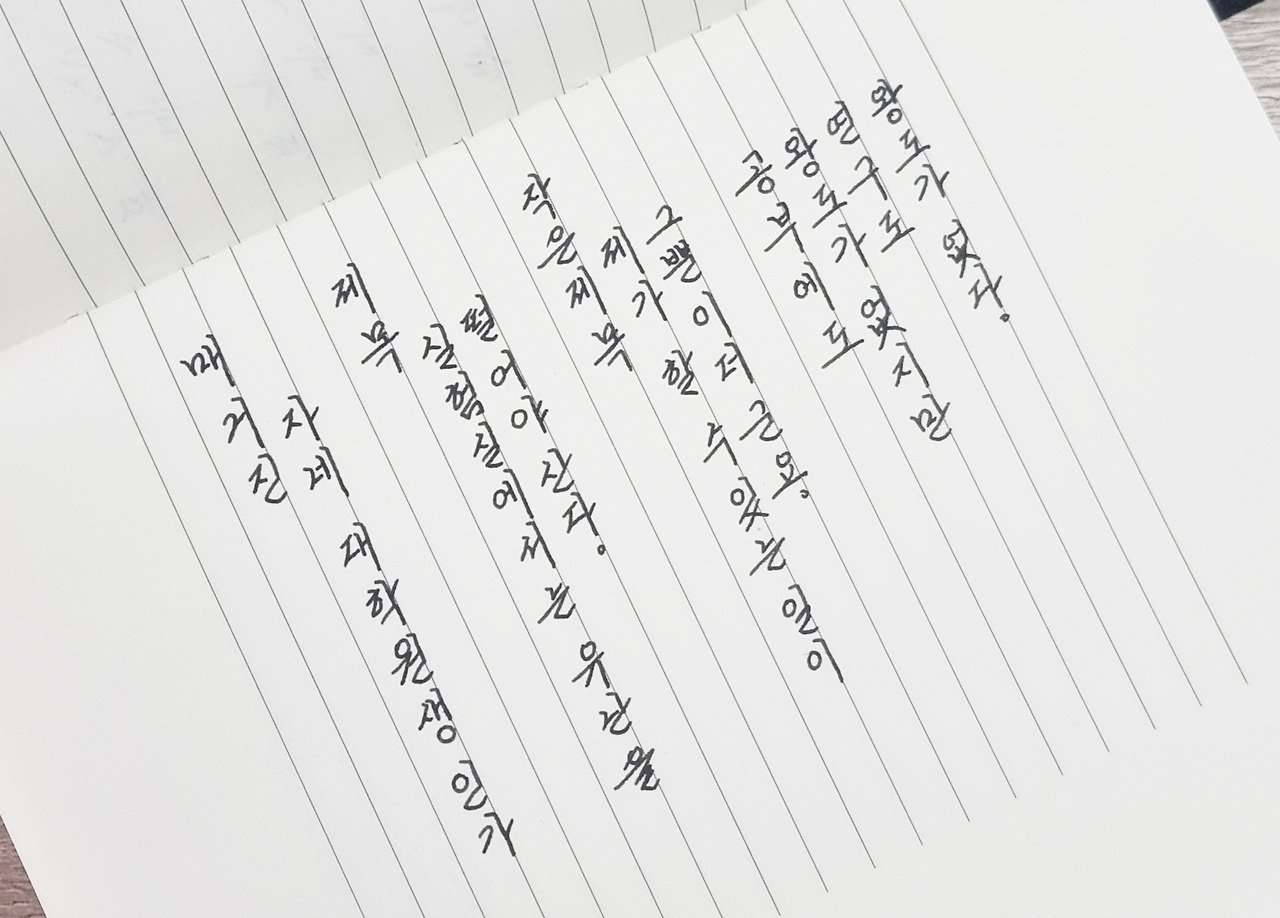 매거진
자네 대학원생인가
제목
실험실에서는 유난을
떨어야 산다.
작은제목
제가 할 수 있는 일이
그뿐이더군요.
공부에도
왕도가 없지만
연구도
왕도가 없다.